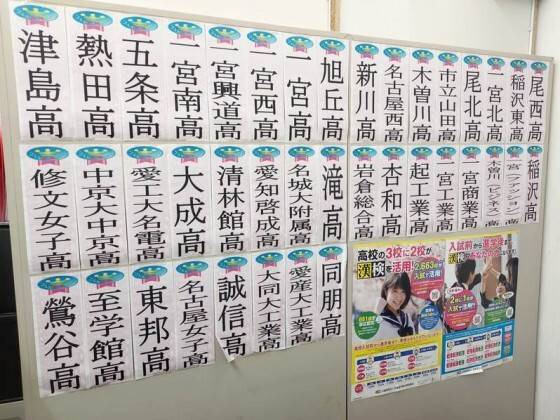 尾西高
稲沢東高
一宮北高
尾北高
市立山田高
木曽川高
名古屋西高
新川高
旭丘高
一宮高
一宮西高
一宮興道高
一宮南高
五条高
熱田高
津島高
稲沢高
一宮(ファッション)高
木曽川(ビジネス)高
一宮商業高
一宮工業高
起工業高
杏和高
岩倉総合高
滝高
名城大附属高
愛知啓成高
清林館高
大成高
愛工大名電高
中京大中京高
修文女子高
同朋高
愛産大工業高
大同大工業高
誠信高
名古屋女子高
東邦高
至学館高
鶯谷高
高校の3校に2校が
漢検を活用!
2,663校が
入試で活用!
入試前から進学後まで
漢検があなたの力になります!
2校に1校が